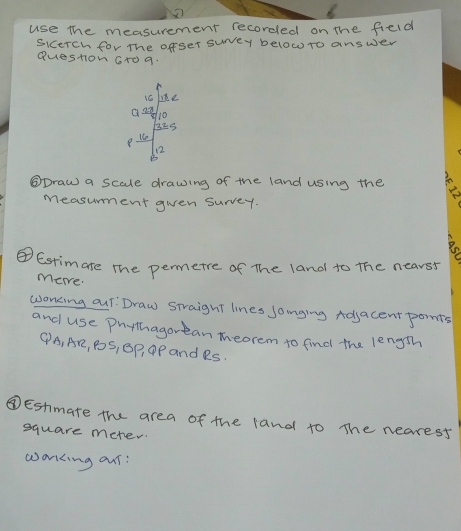 use the measurement recoreled on the field
sketch for the offset survey below to answer
Question 6 to 9.
A
16 18 R
Q 23
10
32 S
P 16
12
B
⑥ Draw a scale drawing of the land using the
measurment given survey.
⑦ Estimate the permetre of the land to the nearst
metre.
working out: Draw straight lines joinging Adjacent points
and use Phythagorean Theorem to find the length
QA, AR, BS, BP, QP and Rs.
Estimate the area of the land to the nearest
square meter.
working out: